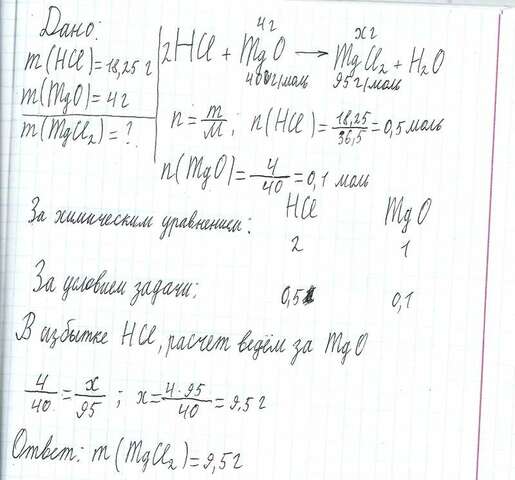 Дано:
m(HCl)=18,25 г
m(MgO)=4г
m(MgCl₂)=?
4г xг
2HCl + MgO → MgCl₂ + H₂O
40г/моль 95г/моль
n = m/M; n(HCl) = 18,25/36,5 = 0,5 моль
n(MgO) = 4/40 = 0,1 моль
За химическим уравнением: HCl MgO
2 1
За условием задачи: 0,5 0,1
В избытке HCl, расчет ведём за MgO
4/40 = x/95; x = 4·95/40 = 9,5 г
Ответ: m(MgCl₂)=9,5г